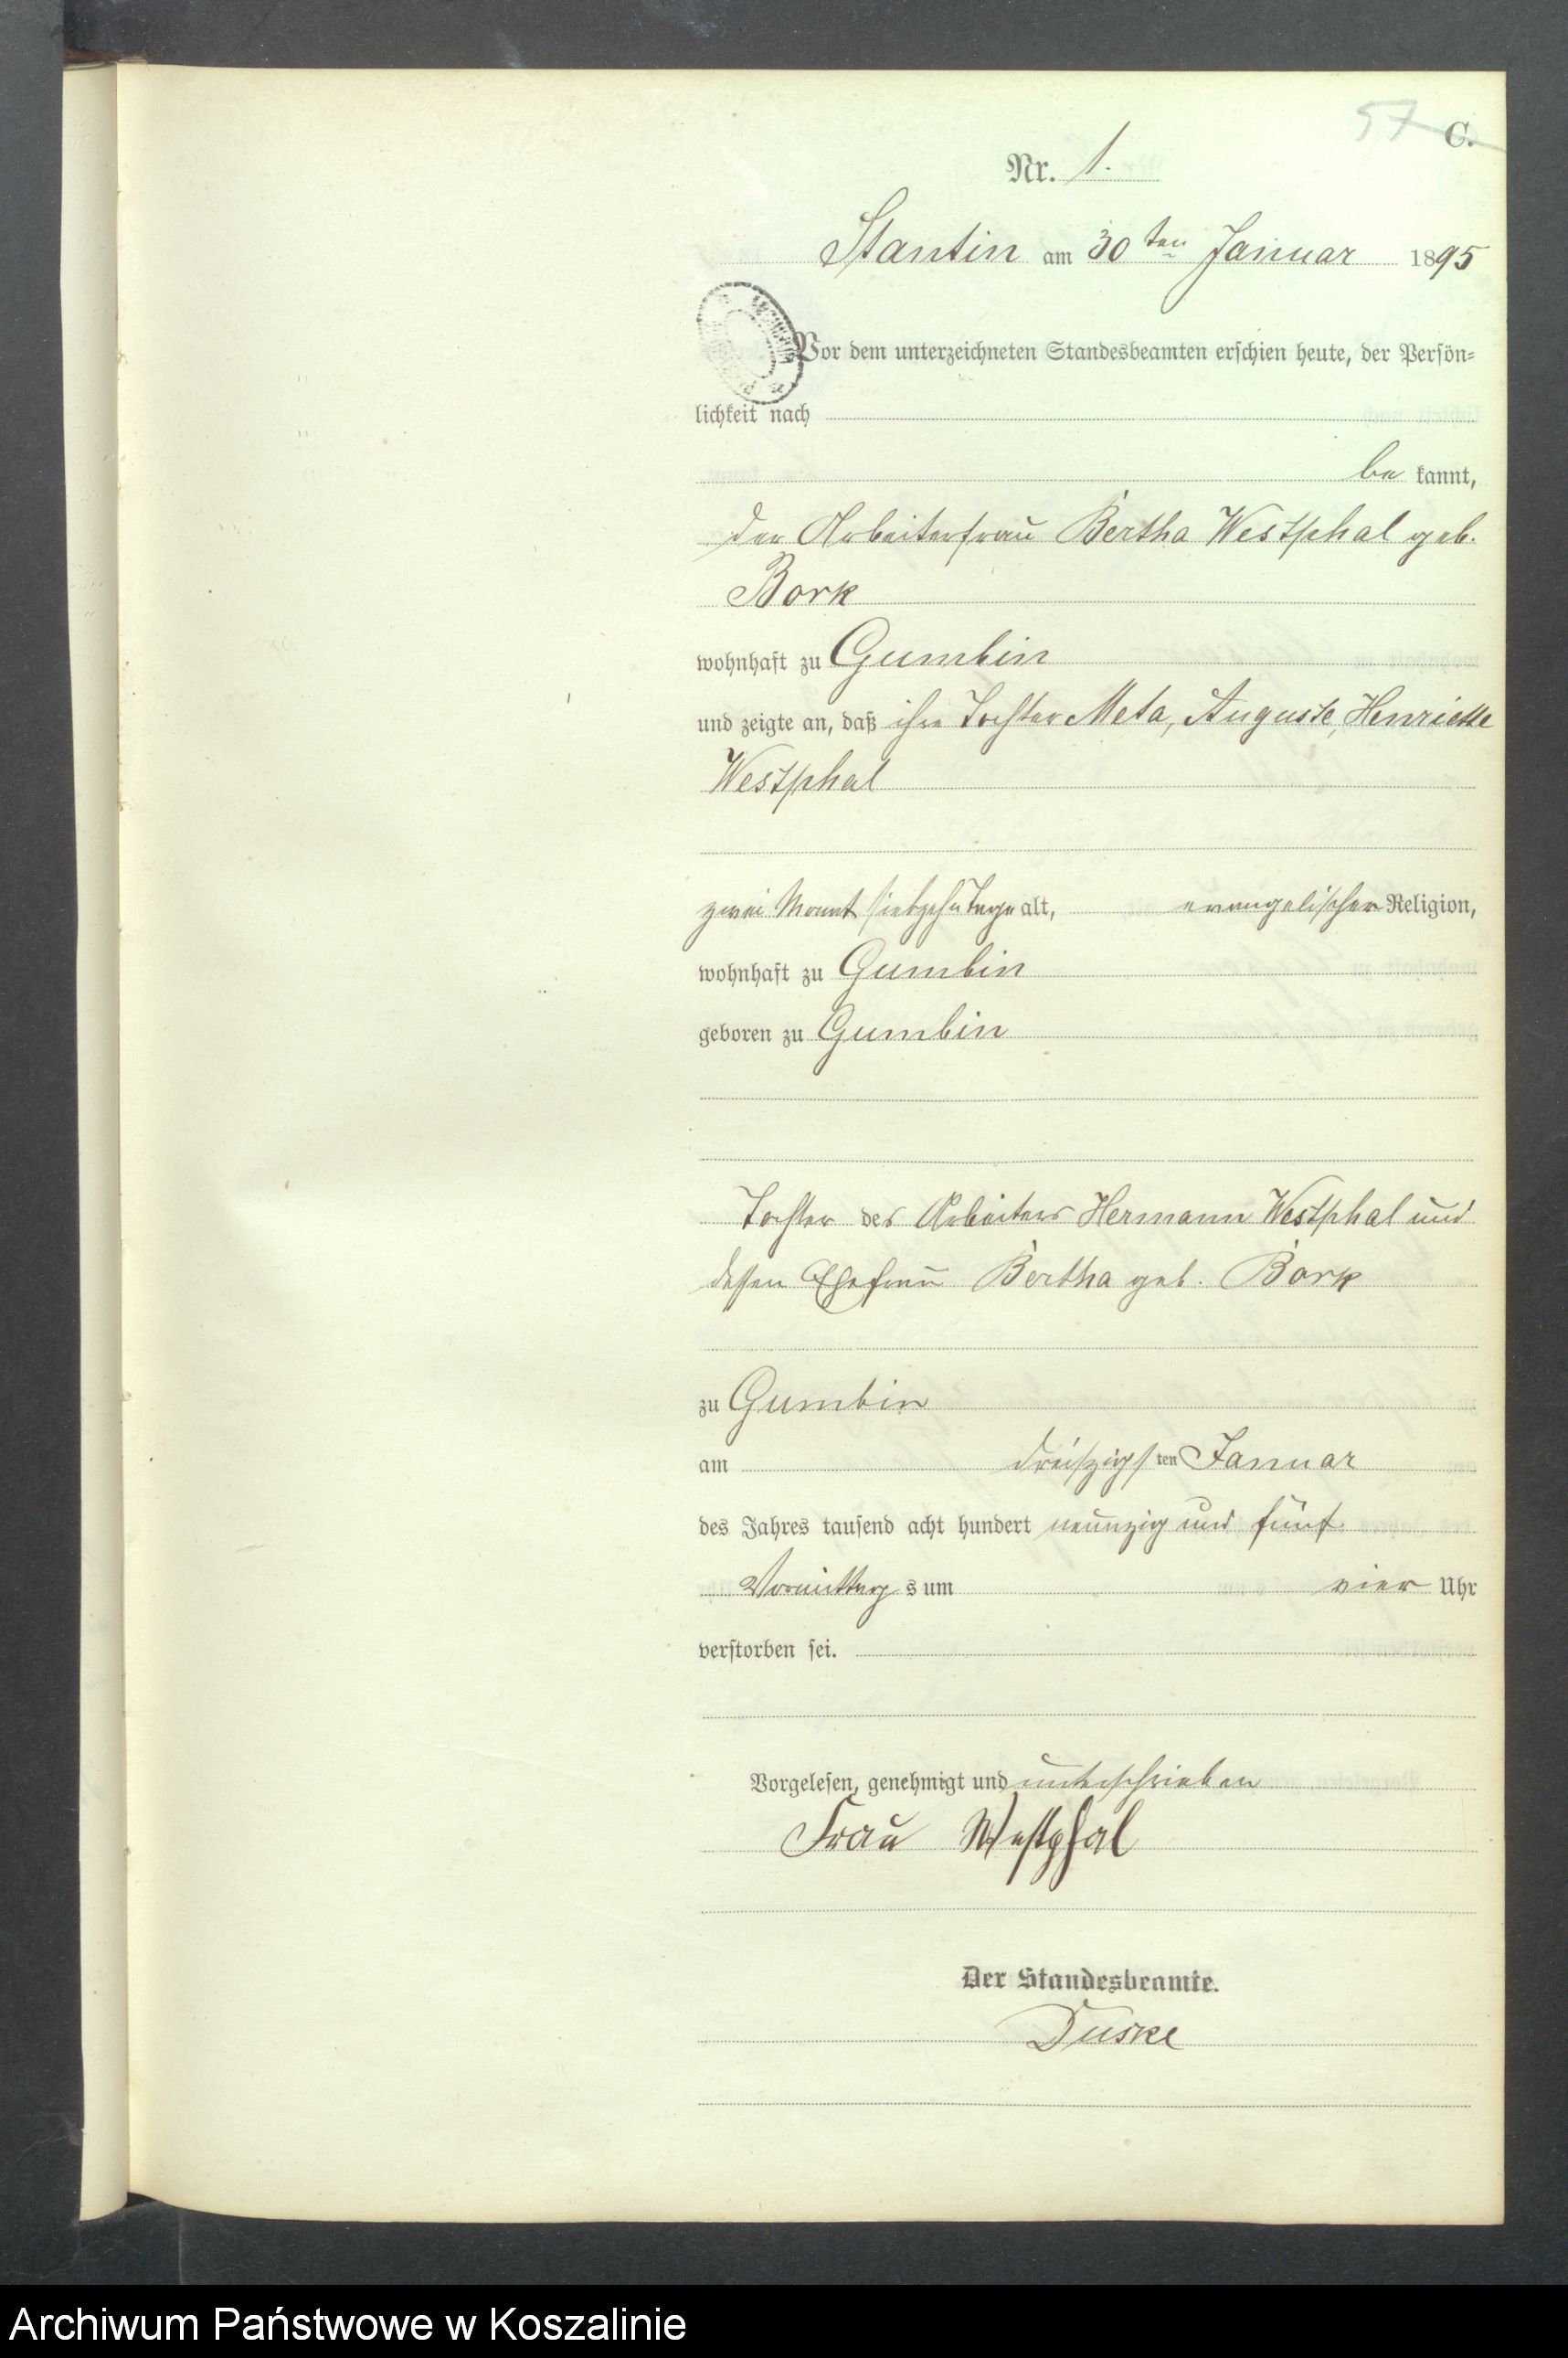 57
C.
Nr. 1.
Stantin am 30ten Januar 1895
Vor dem unterzeichneten Standesbeamten erschien heute, der Persön=
lichkeit nach
be kannt,
der Arbeiterfrau Bertha Westphal geb.
Bork
wohnhaft zu Gumbin
und zeigte an, daß ihre Tochter Meta, Auguste, Henriette
Westphal
zwei Monat siebzehn Tage alt, evangelischer Religion,
wohnhaft zu Gumbin
geboren zu Gumbin
Tochter des Arbeiters Hermann Westphal und
dessen Ehefrau Bertha geb. Bork
zu Gumbin
am dreiszigsten Januar
des Jahres tausend acht hundert neunzig und fünf
Vormittags um vier Uhr
verstorben sei.
Vorgelesen, genehmigt und unterschrieben
Frau Westphal
Der Standesbeamte.
Duske
Archiwum Państwowe w Koszalinie